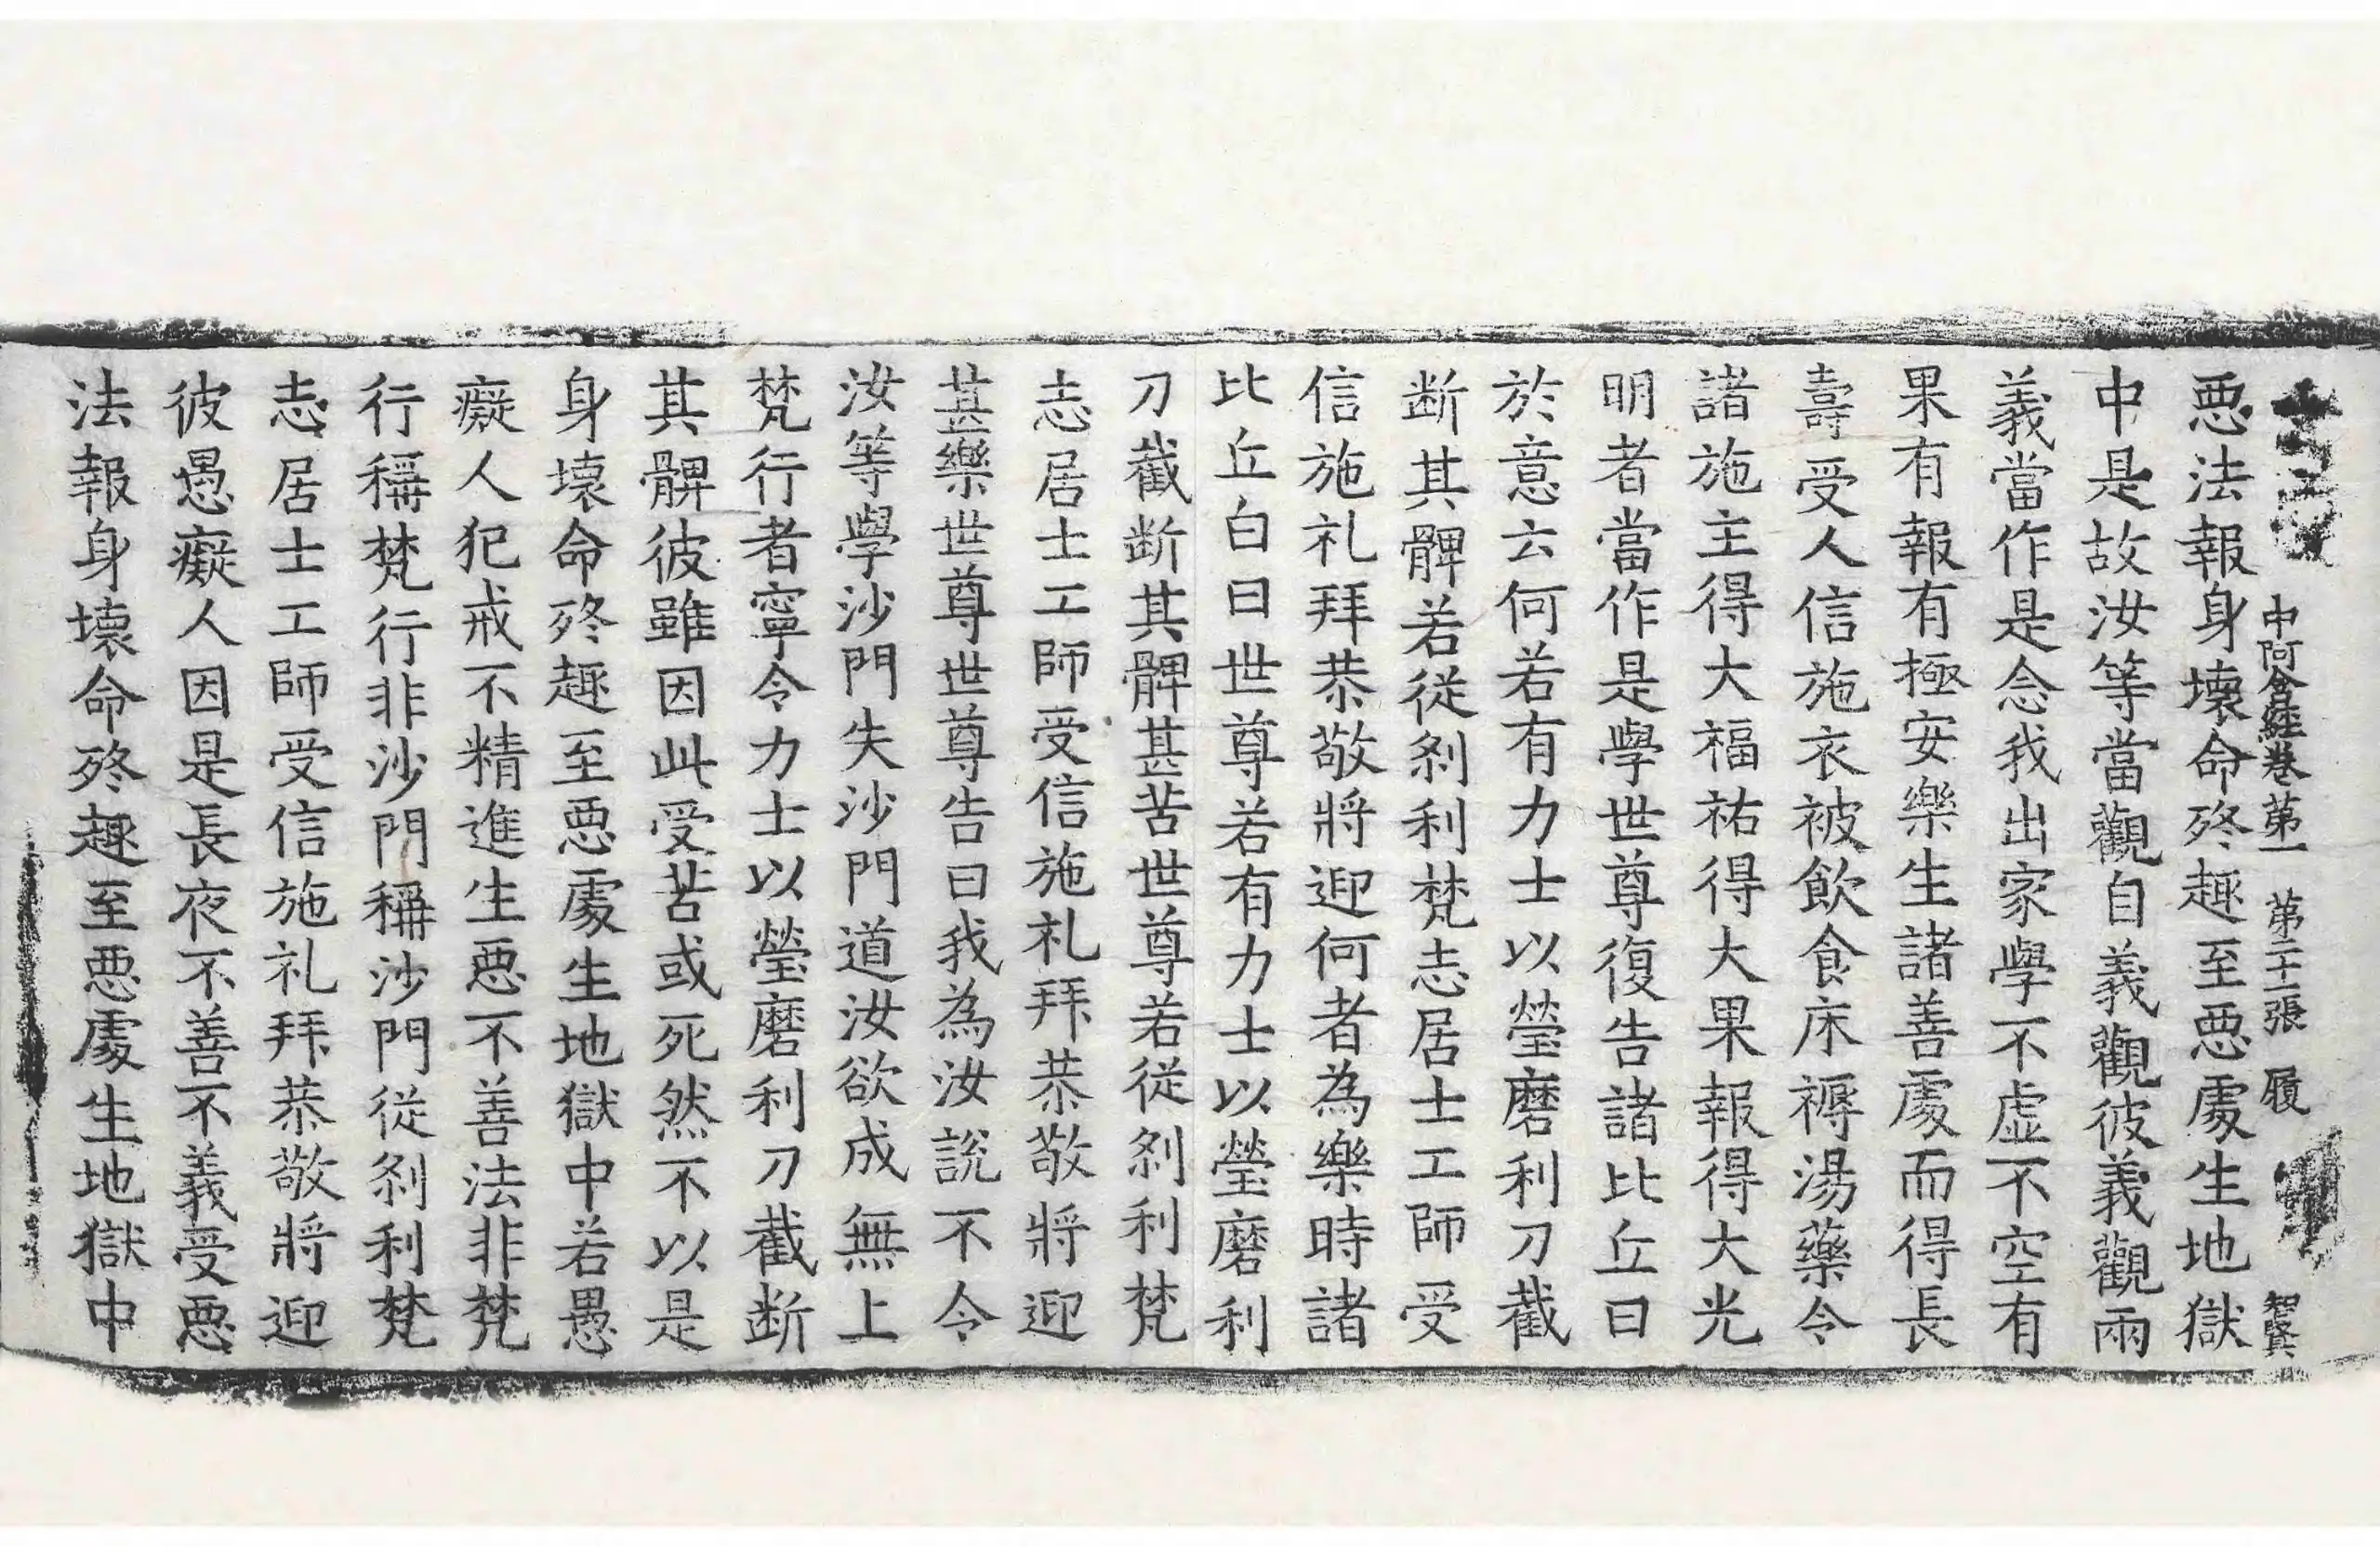 中阿含經卷第一 第二十一張 履 智賢
惡法報身壞命終趣至惡處生地獄
中是故汝等當觀自義觀彼義觀兩
義當作是念我出家學不虛不空有
果有報有極安樂生諸善處而得長
壽受人信施衣被飲食床褥湯藥令
諸施主得大福祐得大果報得大光
明者當作是學世尊復告諸比丘曰
於意云何若有力士以瑩磨利刀截
断其髀若從剎利梵志居士工師受
信施礼拜恭敬將迎何者為樂時諸
比丘白曰世尊若有力士以瑩磨利
刀截断其髀甚苦世尊若從剎利梵
志居士工師受信施礼拜恭敬將迎
甚樂世尊世尊告曰我為汝說不令
汝等學沙門失沙門道汝欲成無上
梵行者寧令力士以瑩磨利刀截断
其髀彼雖因此受苦或死然不以是
身壞命終趣至惡處生地獄中若愚
癡人犯戒不精進生惡不善法非梵
行稱梵行非沙門稱沙門從剎利梵
志居士工師受信施礼拜恭敬將迎
彼愚癡人因是長夜不善不義受惡
法報身壞命終趣至惡處生地獄中